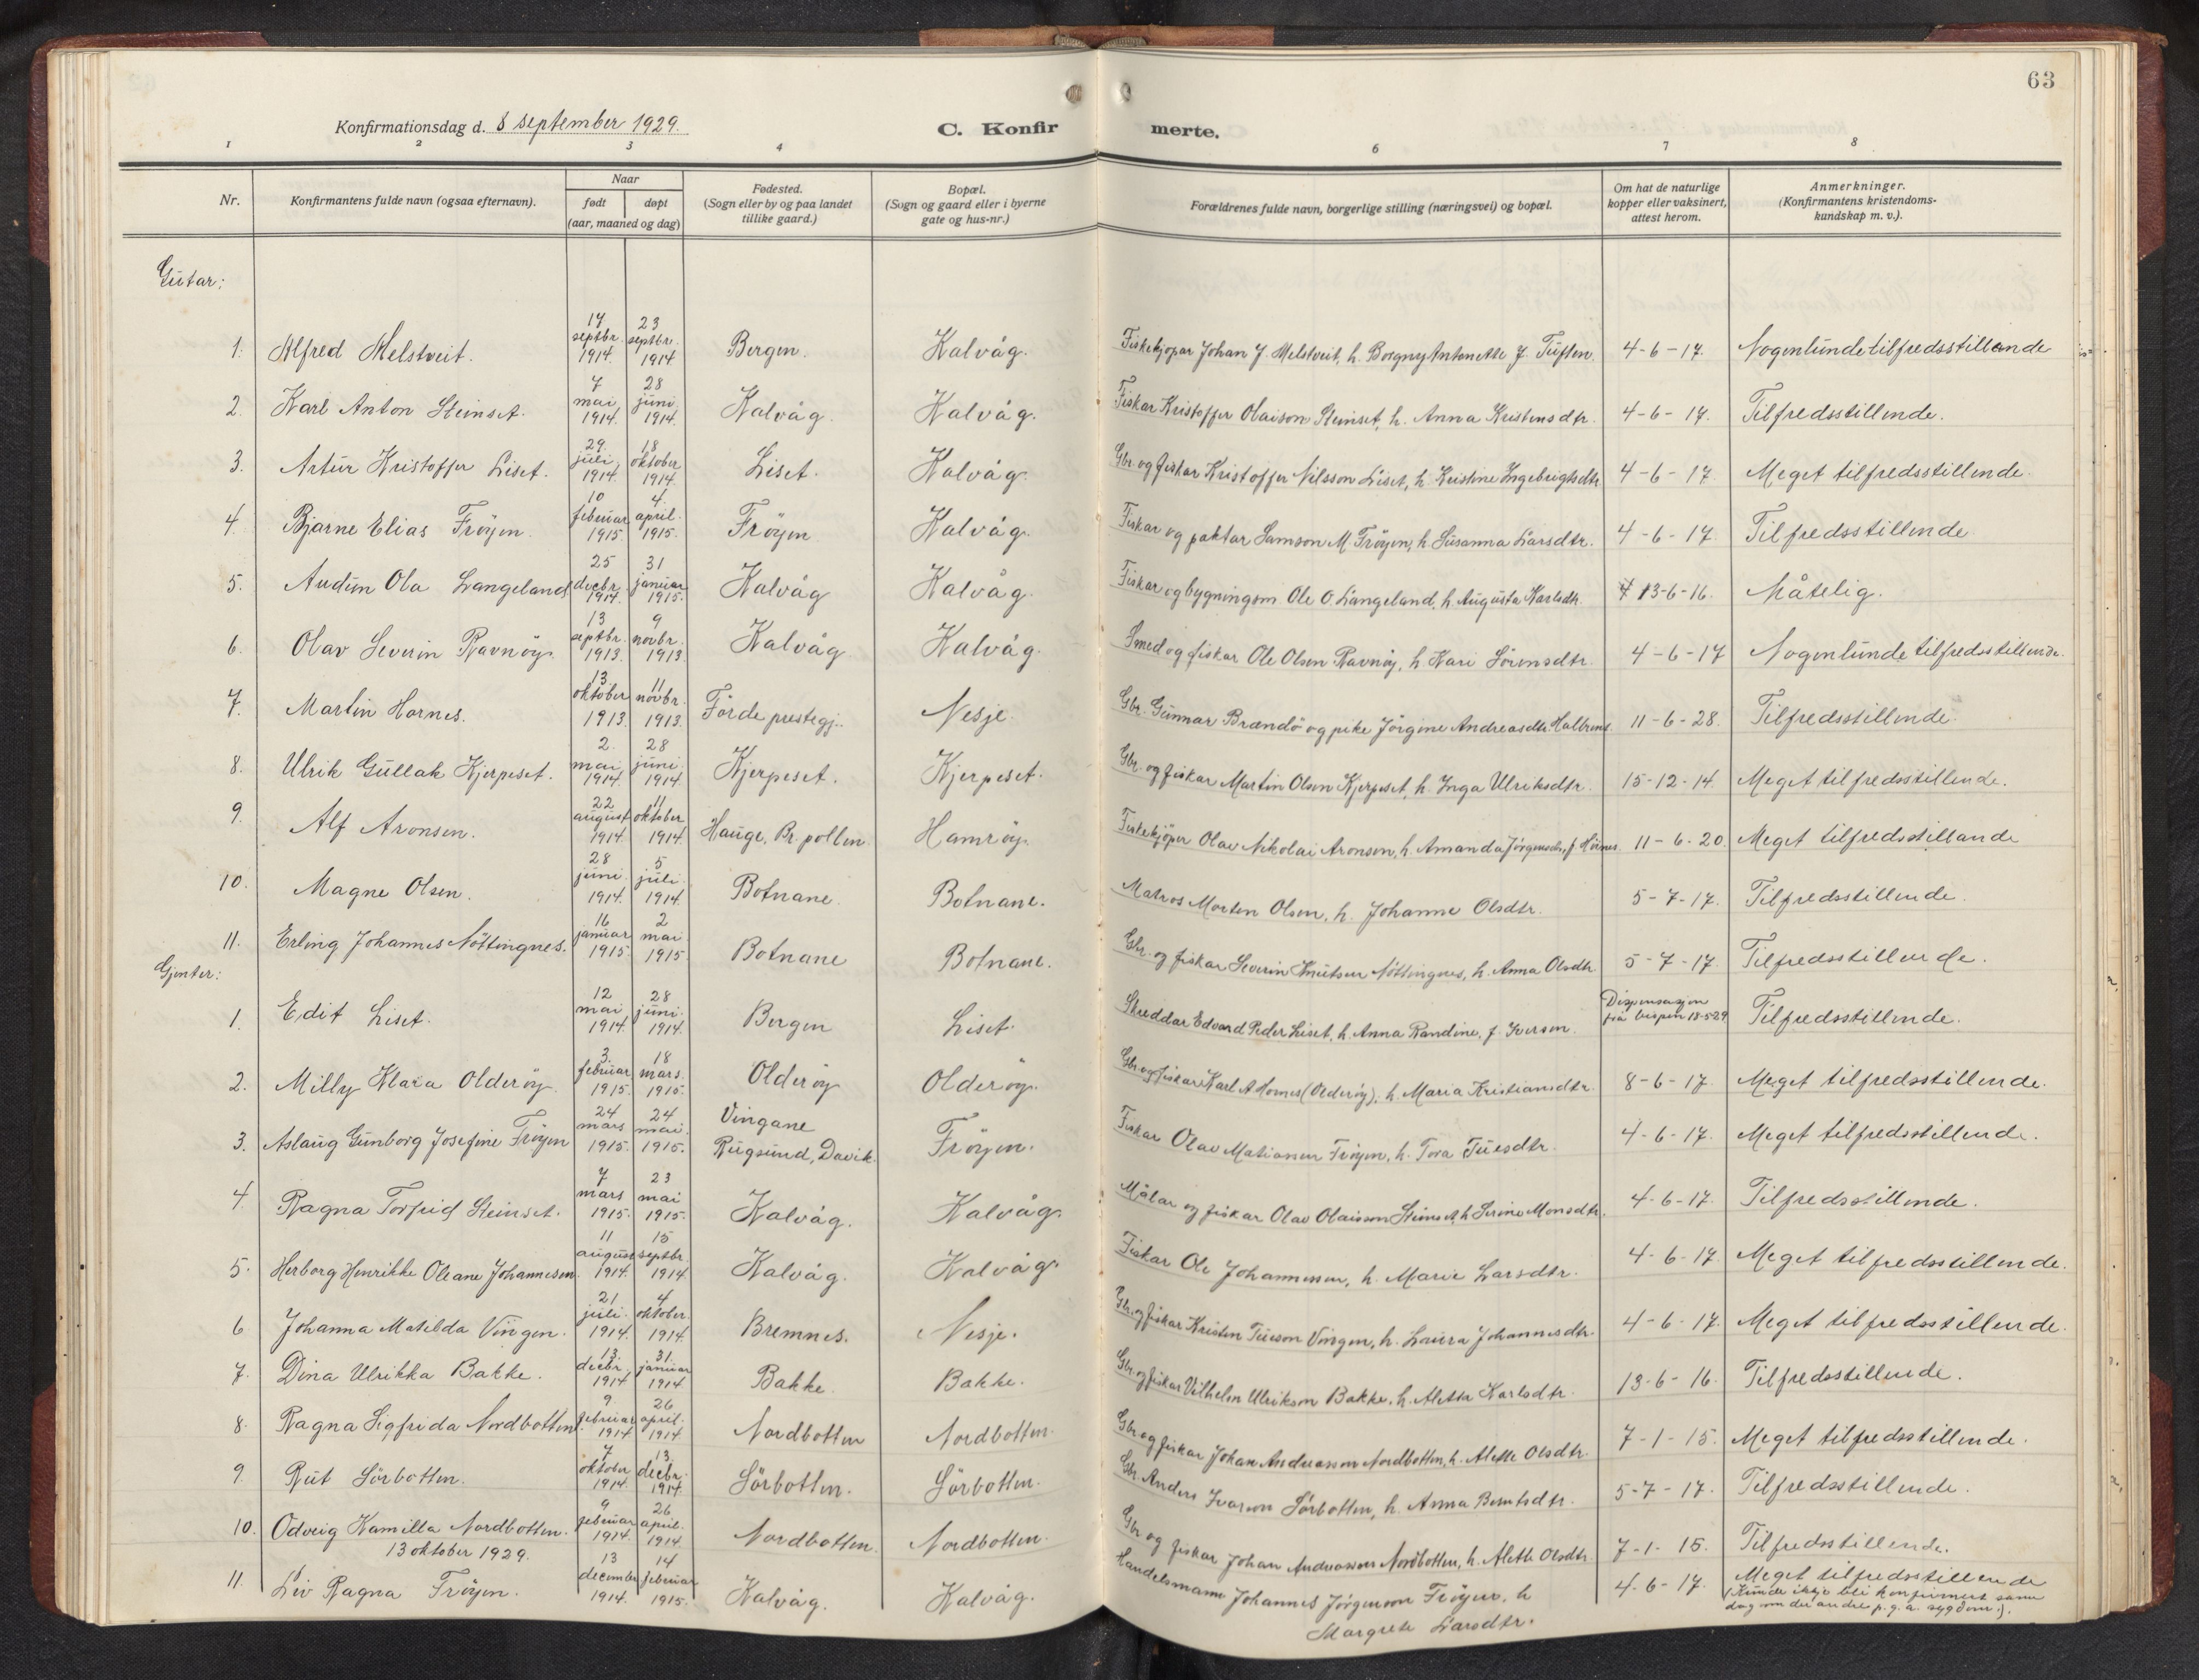 63
Konfirmationsdag d. 8 september 1929.
C. Konfirmerte.
1 2 3 4 6 7 8
Nr.
Konfirmantens fulde navn (ogsaa efternavn).
Naar
født døpt
(aar, maaned og dag)
Fødested.
(Sogn eller by og paa landet
tillike gaard.)
Bopæl.
(Sogn og gaard eller i byerne
gate og hus-nr.)
Forældrenes fulde navn, borgerlige stilling (næringsvei) og bopæl.
Om hat de naturlige
kopper eller vaksinert,
attest herom.
Anmerkninger.
(Konfirmantens kristendoms-
kundskap m. v.).
Gutar:
1. Alfred Melstveit. 14 septbr. 1914. 23 septbr. 1914. Bergen. Kalvåg. Fiskekjøpar Johan J. Melstveit, h. Borgny Antonette f. Tuften. 4-6-17. Nogenlunde tilfredsstillende
2. Karl Anton Steinset. 7 mai 1914. 28 juni 1914. Kalvåg. Kalvåg. Fiskar Kristoffer Olaison Steinset, h. Anna Kristensdtr. 4-6-17. Tilfredsstillende.
3. Artur Kristoffer Liset. 29. juli 1914. 18 oktober 1914. Liset. Kalvåg. Gbr. og fiskar Kristoffer Nilsson Liset, h. Kristine Ingebrigtsdtr. 4-6-17. Meget tilfredsstillende.
4. Bjarne Elias Frøyen. 10 februar 1915. 4. april 1915. Frøyen Kalvåg. Fiskar og paktar Samson M. Frøyen, h. Susanna Larsdtr. 4-6-17. Tilfredsstillende
5. Audun Ola Langeland 25 decbr. 1914. 31 januar 1915. Kalvåg Kalvåg. Fiskar og bygningsm. Ole O. Langeland, h. Augusta Karlsdtr. 13-6-16. Måtelig.
6. Olav Severin Ravnøy. 13 septbr. 1913. 9 novbr. 1913. Kalvåg Kalvåg. Smed og fiskar Ole Olsen Ravnøy, h. Kari Sørensdtr. 4-6-17 Nogenlunde tilfredsstillende.
7. Martin Hornes. 13 oktober 1913. 11 novbr. 1913. Førde prestegj. Nesje. Gbr. Gunnar Brændø og pike Jørgine Andreasdtr. Halbrend. 11-6-28. Tilfredsstillende.
8. Ulrik Gullak Kjerpeset. 2. mai 1914. 28 juni 1914. Kjerpeset. Kjerpeset. Gbr. og fiskar Martin Olsen Kjerpeset, h. Inga Ulriksdtr. 15-12-14. Meget tilfredsstillende.
9. Alf Aronsen. 22 august 1914. 11 oktober 1914. Hauge, Br.pollen. Hamrøy. Fiskekjøper Olav Nikolai Aronsen, h. Amanda Jørgensdtr., f. 11-6-20. Meget tilfredsstillande
10. Magne Olsen. 28 juni 1914. 5 juli 1914. Botnane. Botnane. Matros Morten Olsen, h. Johanne Olsdtr. 5-7-17. Tilfredsstillende.
11. Erling Johannes Nøttingnes. 16 januar 1915. 2 mai 1915. Botnane Botnane. Gbr. og fiskar Severin Knutsen Nøttingnes, h. Anna Olsdtr. 5-7-17. Tilfredsstillende.
Gjenter:
1. Edit Liset. 12 mai 1914. 28 juni. 1914. Bergen Liset. Skreddar Edvard Peder Liset, h. Anna Randine, f. Iversen. Dispensasjon frå bispen 18-5-29 Tilfredsstillende.
2. Milly Klara Olderøy. 3. februar 1915. 18 mars. 1915. Olderøy Olderøy. Gbr. og fiskar Karl A. Hornes (Olderøy), h. Maria Kristiansdtr. 8-6-17. Meget tilfredsstillende.
3. Aslaug Gunborg Josefine Frøyen 24 mars 1915. 24 mai. 1915. Vingane Rugsund, Davik. Frøyen. Fiskar Olav Matiassen Frøyen, h. Tora Tuesdtr. 4-6-17. Meget tilfredsstillende.
4. Ragna Torfrid Steinset. 7 mars 1915. 23 mai 1915. Kalvåg. Kalvåg. Målar og fiskar Olav Olaisson Steinset, h. Serine Monsdtr. 4-6-17. Tilfredsstillende.
5. Herborg Henrikke Oleane Johannesen. 11 august 1914. 15 septbr. 1914 Kalvåg. Kalvåg. Fiskar Ole Johannessen, h. Marie Larsdtr. 4-6-17 Meget tilfredsstillende.
6 Johanna Matilda Vingen. 21 juli. 1914. 4 oktober. 1914. Bremnes. Nesje. Gbr. og fiskar Kristen Tueson Vingen, h. Lovisa Johannesdtr. 4-6-17. Meget tilfredsstillende.
7. Dina Ulrikka Bakke. 13. decbr. 1914 31. januar 1914 Bakke. Bakke. Gbr. og fiskar Vilhelm Ulrikson Bakke, h. Aletta Karlsdtr. 13-6-16. Tilfredsstillende.
8. Ragna Sigfrida Nordbotten. 9 februar 1914 26 april. 1914 Nordbotten Nordbotten. Gbr. og fiskar Johan Andreassen Nordbotten, h. Alette Olsdtr. 7-1-15. Meget tilfredsstillende.
9. Rut Sørbotten. 7 oktober 1914. 13. decbr. 1914. Sørbotten. Sørbotten. Gbr. Anders Ivarson Sørbotten, h. Anna Berntsdtr. 5-7-17. Tilfredsstillende.
10. Odveig Kamilla Nordbotten. 9 februar 1914. 26 april. 1914. Nordbotten. Nordbotten. Gbr. og fiskar Johan Andreassen Nordbotten, h. Alette Olsdtr. 7-1-15. Tilfredsstillende.
13 oktober 1929.
11. Liv Ragna Frøyen. 13 december 1914. 14 februar 1915. Kalvåg. Kalvåg. Handelsmann Johannes Jørgenson Frøyen, h Margrete Larsdtr. 4-6-17. Meget tilfredsstillende
(Kunde ikkje bli konfirmert same
dag som dei andre p.g.a. sygdom.).